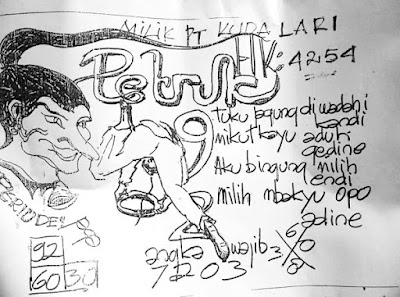 MILIK PT KUDA LARI
HK: 4254
Petruk
tuku jagung di wadahi
kendi
mikut kayu aduh
gedine
Aku bingung milih
endi
milih mbakyu opo
adine
9
2
PERIODE
92
60 30
angka wajib 3 6 0 8
7203